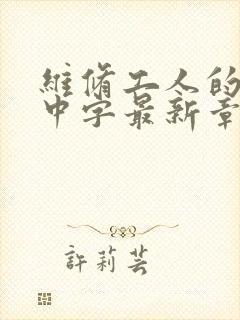 維脩工人的
中字最新章
許莉芸